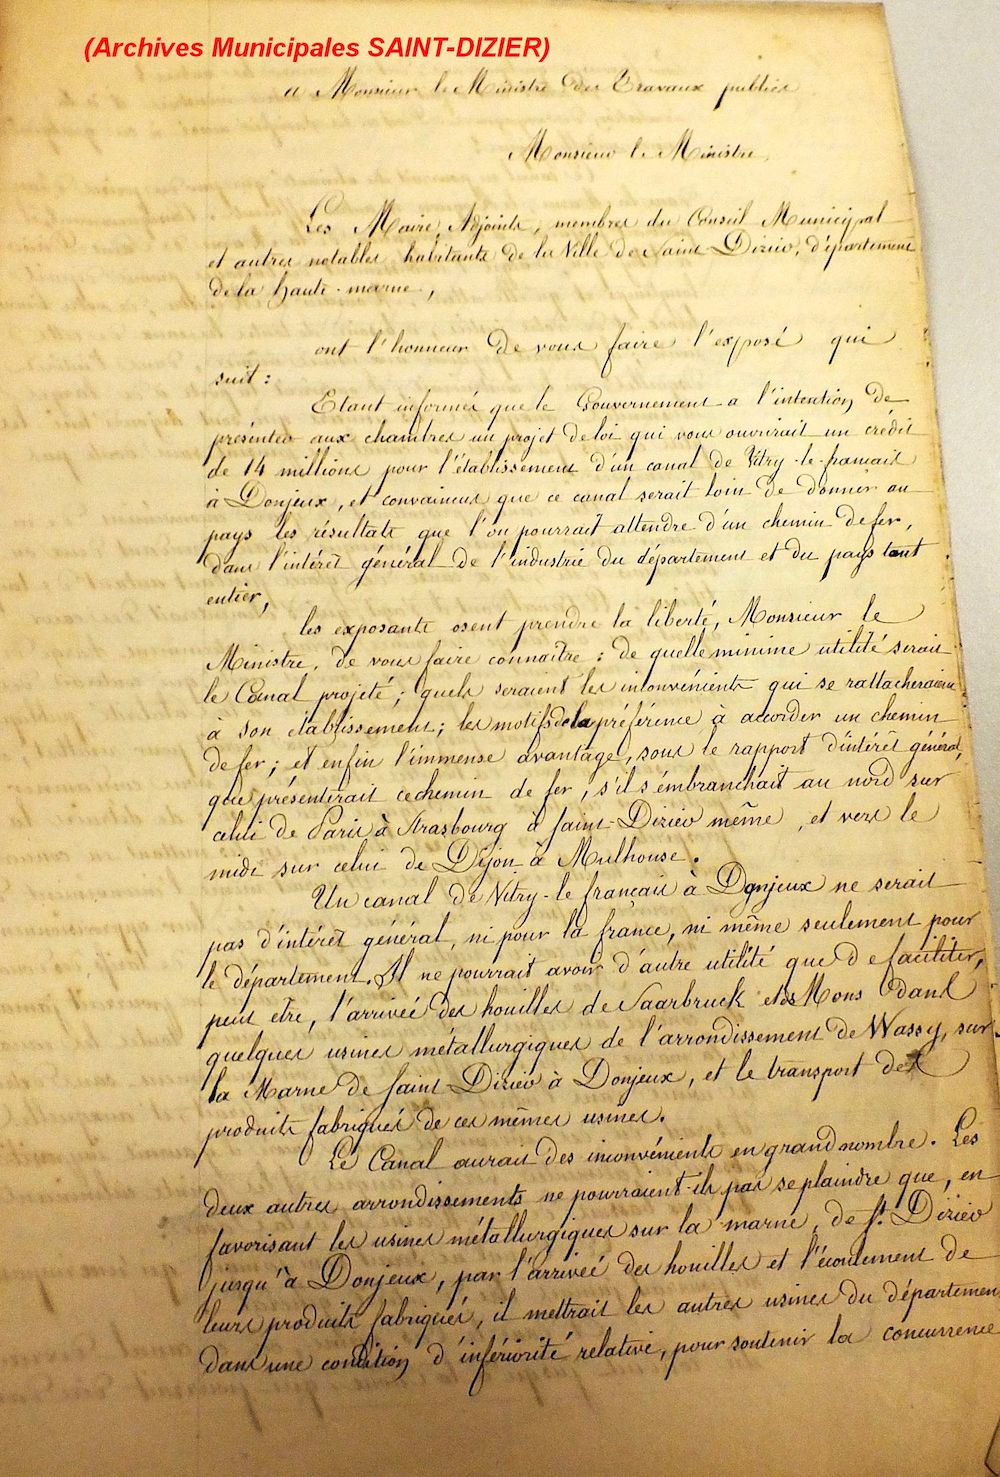 (Archives Municipales SAINT-DIZIER)
a Monsieur le Ministre des Travaux publics
Monsieur le Ministre,
Les Maire, Adjoints, membres du Conseil Municipal
et autres notables habitants de la Ville de Saint-Dizier, département
de la haute-marne,
ont l'honneur de vous faire l'exposé qui
suit :
Etant informés que le Gouvernement a l'intention de
présenter aux chambres un projet de loi qui vous ouvrirait un crédit
de 14 millions pour l'établissement d'un canal de Vitry-le-français
à Donjeux, et convaincus que ce canal serait loin de donner au
pays les résultats que l'on pourrait attendre d'un chemin de fer,
dans l'intérêt général de l'industrie du département et du pays tout
entier,
les exposants osent prendre la liberté, Monsieur le
Ministre, de vous faire connaître : de quelle minime utilité serait
le Canal projeté ; quels seraient les inconvénients qui se rattacheraient
à son établissement ; les motifs de la préférence à accorder un chemin
de fer ; et enfin l'immense avantage, sous le rapport d'intérêt général,
que présenterait ce chemin de fer, s'il s'embranchait au nord sur
celui de Paris à Strasbourg à Saint-Dizier même, et vers le
midi sur celui de Dijon à Mulhouse.
Un canal de Vitry-le français à Donjeux ne serait
pas d'intérêt général, ni pour la france, ni même seulement pour
le département. Il ne pourrait avoir d'autre utilité que de faciliter,
peut etre, l'arrivée des houilles de Saarbruck et de Mons dans
quelques usines métallurgiques de l'arrondissement de Wassy, sur
la Marne de Saint Dizier à Donjeux, et le transport des
produits fabriqués de ces mêmes usines.
Le Canal aurait des inconvénients en grand nombre. Les
deux autres arrondissements ne pourraient-ils pas se plaindre que, en
favorisant les usines métallurgiques sur la marne, de St. Dizier
jusqu'à Donjeux, par l'arrivée des houilles et l'écoulement de
leurs produits fabriqués, il mettrait les autres usines du département
dans une condition d'infériorité relative, pour soutenir la concurrence